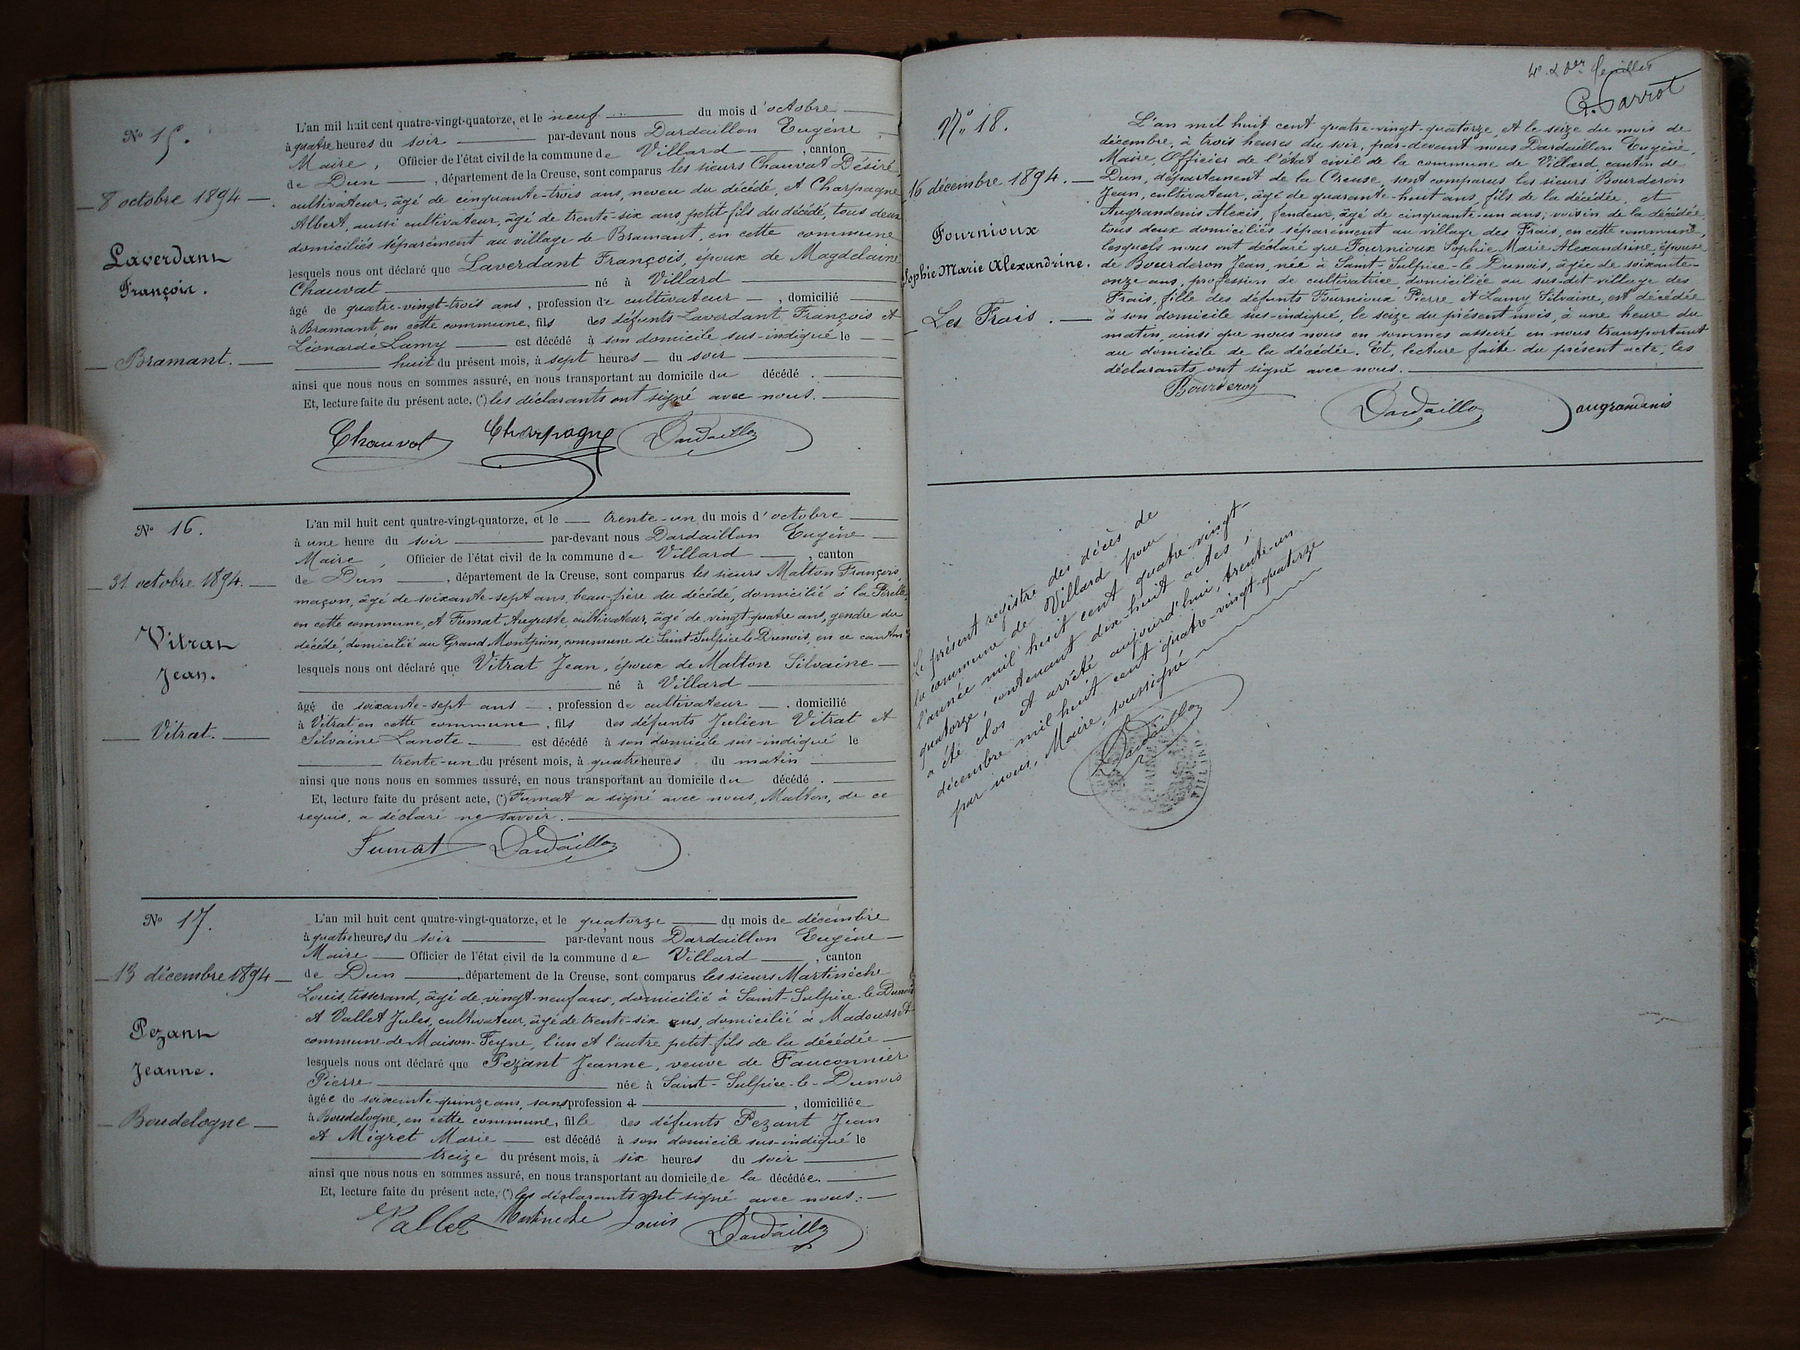 Nº 15.
8 octobre 1894
Laverdant
François.
Bramant.
L'an mil huit cent quatre-vingt-quatorze, et le neuf du mois d'octobre
à quatre heures du soir par-devant nous Dardaillon Eugène
Maire, Officier de l'état civil de la commune de Villard, canton
de Dun, département de la Creuse, sont comparus les sieurs Chauvat Désiré,
cultivateur, âgé de cinquante-trois ans, neveu du décédé, et Charpagne
Albert, aussi cultivateur, âgé de trente-six ans, petit-fils du décédé, tous deux
domiciliés séparément au village de Bramant, en cette commune
lesquels nous ont déclaré que Laverdant François, époux de Magdelaine
Chauvat né à Villard
âgé de quatre-vingt-trois ans, profession de cultivateur, domicilié
à Bramant en cette commune, fils des défunts Laverdant François et
Léonarde Lamy est décédé à son domicile sus-indiqué le
huit du présent mois, à sept heures du soir
ainsi que nous nous en sommes assuré, en nous transportant au domicile du décédé.
Et, lecture faite du présent acte, (*) les déclarants ont signé avec nous.
Chauvat Charpagne Dardaillon
Nº 16.
31 octobre 1894.
Vitrat
Jean.
Vitrat.
L'an mil huit cent quatre-vingt-quatorze, et le trente-un du mois d'octobre
à une heure du soir par-devant nous Dardaillon Eugène
Maire, Officier de l'état civil de la commune de Villard, canton
de Dun, département de la Creuse, sont comparus les sieurs Malton François,
maçon, âgé de soixante-sept ans, beau-frère du décédé, domicilié à la
en cette commune, et Fumat Auguste cultivateur, âgé de vingt-quatre ans, gendre du
décédé, domicilié au Grand Montpion, commune de Saint-Sulpice le Dunois, en ce canton
lesquels nous ont déclaré que Vitrat Jean, époux de Malton Silvaine
né à Villard
âgé de soixante-sept ans, profession de cultivateur, domicilié
à Vitrat en cette commune, fils des défunts Julien Vitrat et
Silvaine Lanote est décédé à son domicile sus-indiqué le
trente-un du présent mois, à quatre heures du matin
ainsi que nous nous en sommes assuré, en nous transportant au domicile du décédé.
Et, lecture faite du présent acte, (*) Fumat a signé avec nous, Malton, de ce
requis, a déclaré ne savoir.
Fumat Dardaillon
Nº 17.
13 décembre 1894
Pezant
Jeanne.
Boudelogne
L'an mil huit cent quatre-vingt-quatorze, et le quatorze du mois de décembre
à quatre heures du soir par-devant nous Dardaillon Eugène
Maire Officier de l'état civil de la commune de Villard, canton
de Dun, département de la Creuse, sont comparus les sieurs Martinèche
Louis, tisserand, âgé de vingt-neuf ans, domicilié à Saint-Sulpice le Dunois
et Vallet Jules, cultivateur, âgé de trente-six ans, domicilié à Madousset
commune de Maison-Feyne, l'un et l'autre petit-fils de la décédée
lesquels nous ont déclaré que Pezant Jeanne, veuve de Fauconnier
Pierre née à Saint-Sulpice-le-Dunois
âgée de soixante-quinze ans, sans profession d, domiciliée
à Boudelogne, en cette commune, fille des défunts Pezant Jean
et Migret Marie est décédé à son domicile sus-indiqué le
treize du présent mois, à six heures du soir
ainsi que nous nous en sommes assuré, en nous transportant au domicile de la décédée.
Et, lecture faite du présent acte, (*) les déclarants ont signé avec nous.
Vallet Martineche Louis Dardaillon
4e & der feuillet
G. Parrot
Nº 18.
16 décembre 1894.
Fournioux
Sophie Marie Alexandrine.
Les Frais.
L'an mil huit cent quatre-vingt-quatorze, et le seize du mois de
décembre, à trois heures du soir, par-devant nous Dardaillon Eugène,
Maire, Officier de l'état civil de la commune de Villard canton de
Dun, département de la Creuse sont comparus les sieurs Bourderon
Jean, cultivateur, âgé de quarante-huit ans, fils de la décédée, et
Augrandenis Alexis, fendeur, âgé de cinquante-un ans, voisin de la décédée,
tous deux domiciliés séparément au village des Frais, en cette commune,
lesquels nous ont déclaré que Fournioux Sophie, Marie, Alexandrine, épouse
de Bourderon Jean, née à Saint-Sulpice-le Dunois, âgée de soixante-
onze ans, profession de cultivatrice, domiciliée au sus-dit village des
Frais, fille des défunts Fournioux Pierre et Lamy Silvaine, est décédée
à son domicile sus-indiqué, le seize du présent mois, à une heure du
matin, ainsi que nous nous en sommes assuré en nous transportant
au domicile de la décédée. Et, lecture faite du présent acte, les
déclarants ont signé avec nous.
Bourderon Dardaillon augrandenis
Le présent registre des décès de
la commune de Villard pour
l'année mil huit cent quatre-vingt-
quatorze, contenant dix-huit actes,
a été clos et arrêté aujourd'hui, trente-un
décembre mil huit cent quatre-vingt-quatorze
par nous, Maire, soussigné
Dardaillon
MAIRIE
VILLARD